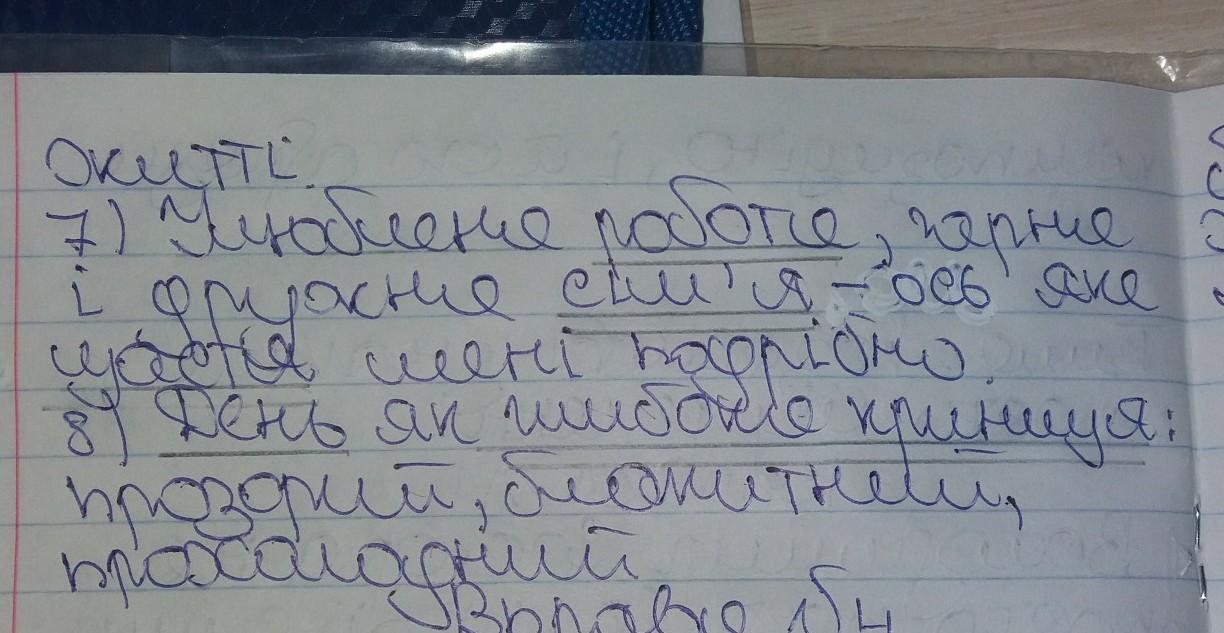 житті.
7) Улюблена робота, гарна
і дружна сім'я – ось яке
щастя мені потрібно.
8) День як глибока криниця:
прозорий, блакитний,
прохолодний
Вправа